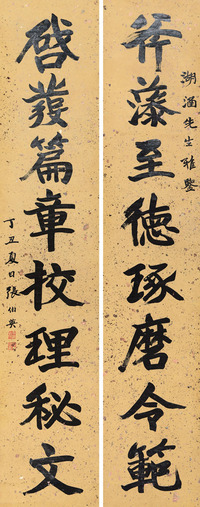 湖涵先生雅鑒
斧藻至德琢磨令範
啓發篇章校理秘文
丁丑夏日張伯英